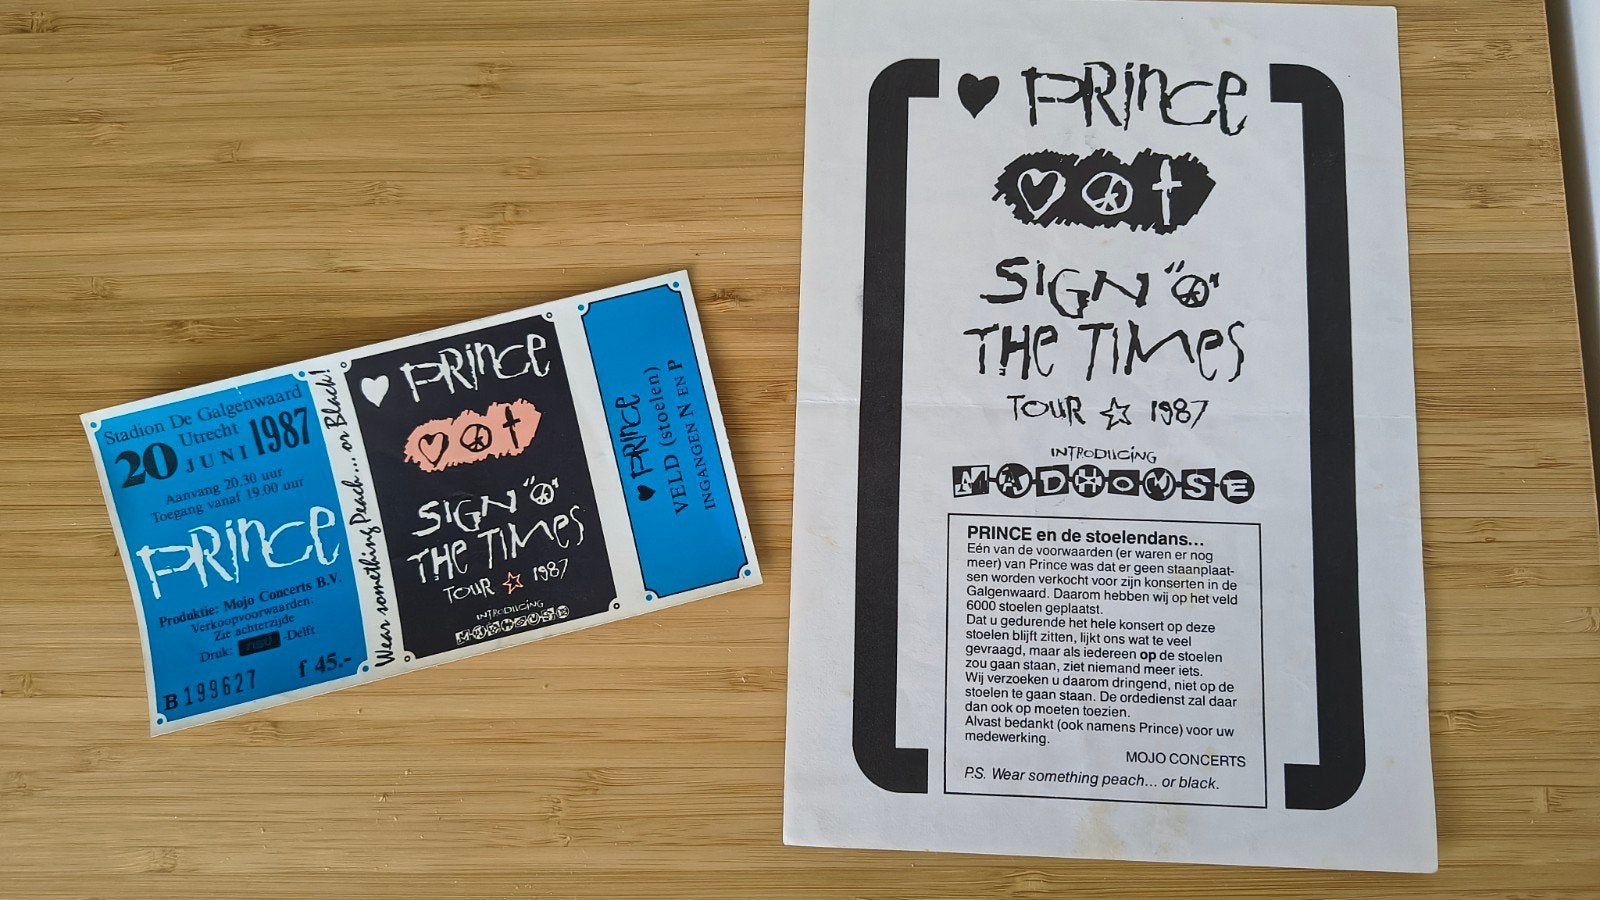 Stadion De Galgenwaard
Utrecht
20 JUNI 1987
Aanvang 20.30 uur
Toegang vanaf 19.00 uur
PRINCE
Produktie: Mojo Concerts B.V.
Verkoopvoorwaarden:
Zie achterzijde
Druk: -Delft
B 199627 f 45.-
Wear something Peach... or Black!
PRINCE
SIGN "O"
THE TIMES
TOUR ☆ 1987
INTRODUCING
MADHOUSE
PRINCE
VELD (stoelen)
INGANGEN N EN P
PRINCE
SIGN "O"
THE TIMES
TOUR ☆ 1987
INTRODUCING
MADHOUSE
PRINCE en de stoelendans...
Eén van de voorwaarden (er waren er nog
meer) van Prince was dat er geen staanplaat-
sen worden verkocht voor zijn konserten in de
Galgenwaard. Daarom hebben wij op het veld
6000 stoelen geplaatst.
Dat u gedurende het hele konsert op deze
stoelen blijft zitten, lijkt ons wat te veel
gevraagd, maar als iedereen op de stoelen
zou gaan staan, ziet niemand meer iets.
Wij verzoeken u daarom dringend, niet op de
stoelen te gaan staan. De ordedienst zal daar
dan ook op moeten toezien.
Alvast bedankt (ook namens Prince) voor uw
medewerking.
MOJO CONCERTS
P.S. Wear something peach... or black.